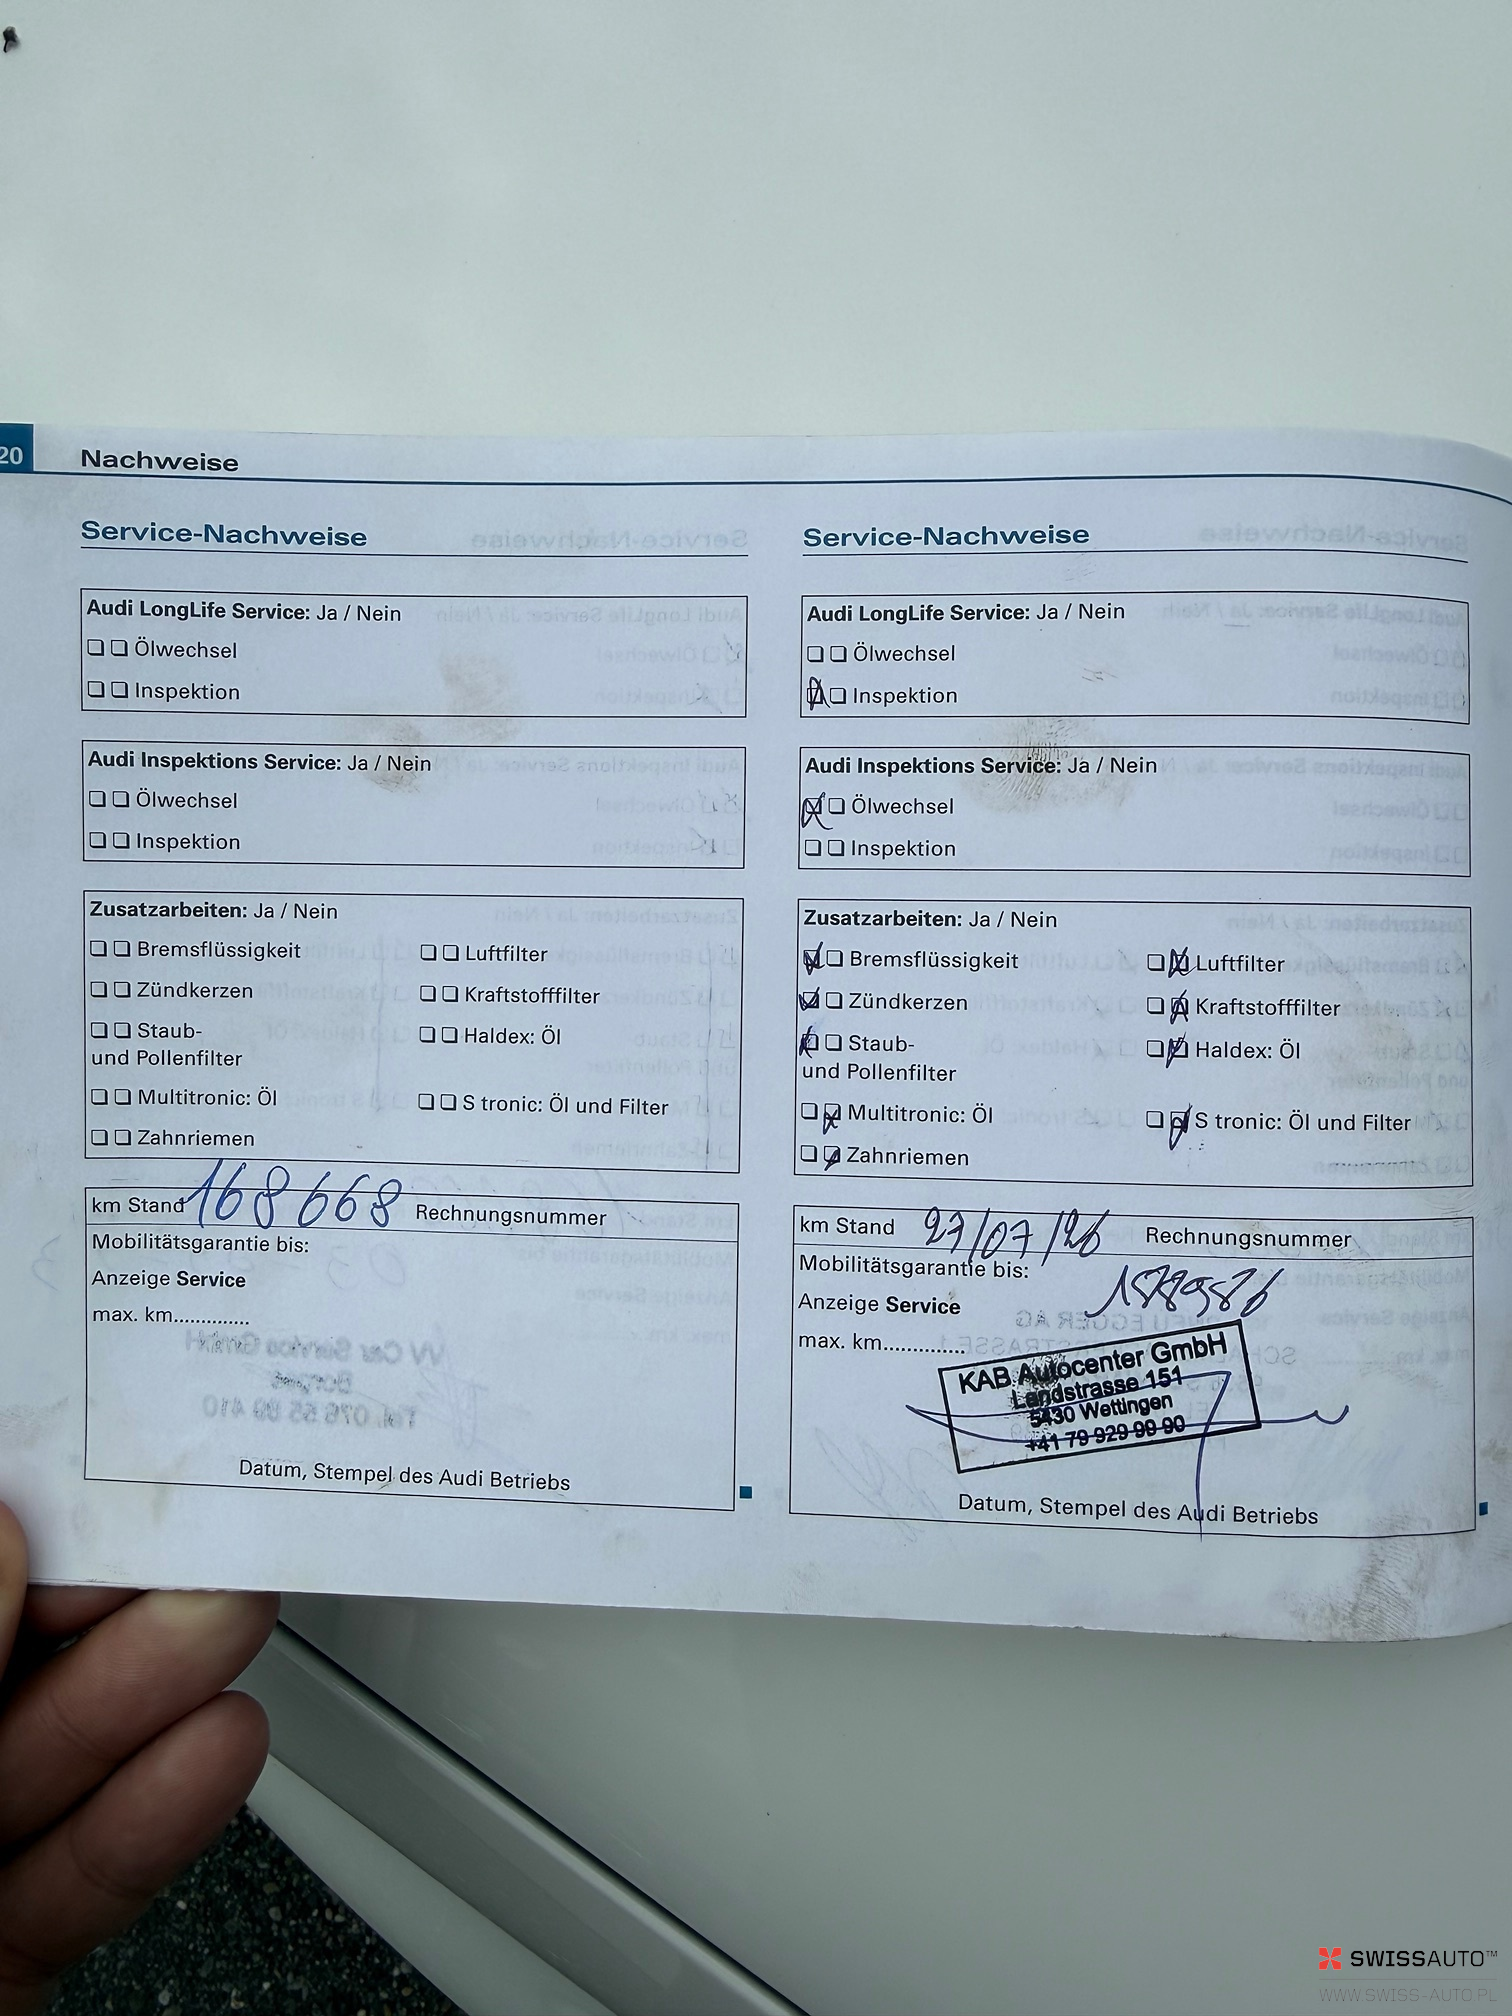 20 Nachweise
Service-Nachweise
Audi LongLife Service: Ja / Nein
Ölwechsel
Inspektion
Audi Inspektions Service: Ja / Nein
Ölwechsel
Inspektion
Zusatzarbeiten: Ja / Nein
Bremsflüssigkeit Luftfilter
Zündkerzen Kraftstofffilter
Staub- Haldex: Öl
und Pollenfilter
Multitronic: Öl S tronic: Öl und Filter
Zahnriemen
km Stand 168668 Rechnungsnummer
Mobilitätsgarantie bis:
Anzeige Service
max. km.............
Datum, Stempel des Audi Betriebs
Service-Nachweise
Audi LongLife Service: Ja / Nein
Ölwechsel
Inspektion
Audi Inspektions Service: Ja / Nein
Ölwechsel
Inspektion
Zusatzarbeiten: Ja / Nein
Bremsflüssigkeit Luftfilter
Zündkerzen Kraftstofffilter
Staub- Haldex: Öl
und Pollenfilter
Multitronic: Öl S tronic: Öl und Filter
Zahnriemen
km Stand 27/07/26 Rechnungsnummer
Mobilitätsgarantie bis:
Anzeige Service
max. km..............
KAB Autocenter GmbH
Landstrasse 151
5430 Wettingen
+41 79 929 99 90
Datum, Stempel des Audi Betriebs
SWISSAUTO™
WWW.SWISS-AUTO.PL